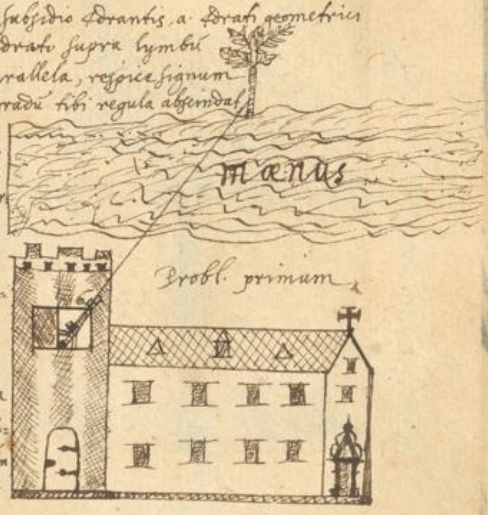 subsidio Qdrantis, a. Qdrati geometrici
drati supra lymbũ
rallela, respice signum
gradũ tibi regula abscindat
mœnus
Probl. primum